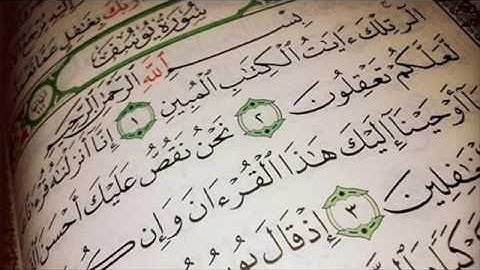 رَبُّكَ بِغَٰفِلٍ عَمَّا
سُورَةُ يُوسُفَ
بِسْمِ ٱللَّهِ ٱلرَّحْمَٰنِ ٱلرَّحِيمِ
الٓر تِلْكَ ءَايَٰتُ ٱلْكِتَٰبِ ٱلْمُبِينِ ١ إِنَّآ أَنزَلْنَٰهُ
لَّعَلَّكُمْ تَعْقِلُونَ ٢ نَحْنُ نَقُصُّ عَلَيْكَ أَحْسَنَ
أَوْحَيْنَآ إِلَيْكَ هَٰذَا ٱلْقُرْءَانَ وَإِن
ٱلْغَٰفِلِينَ ٣ إِذْ قَالَ